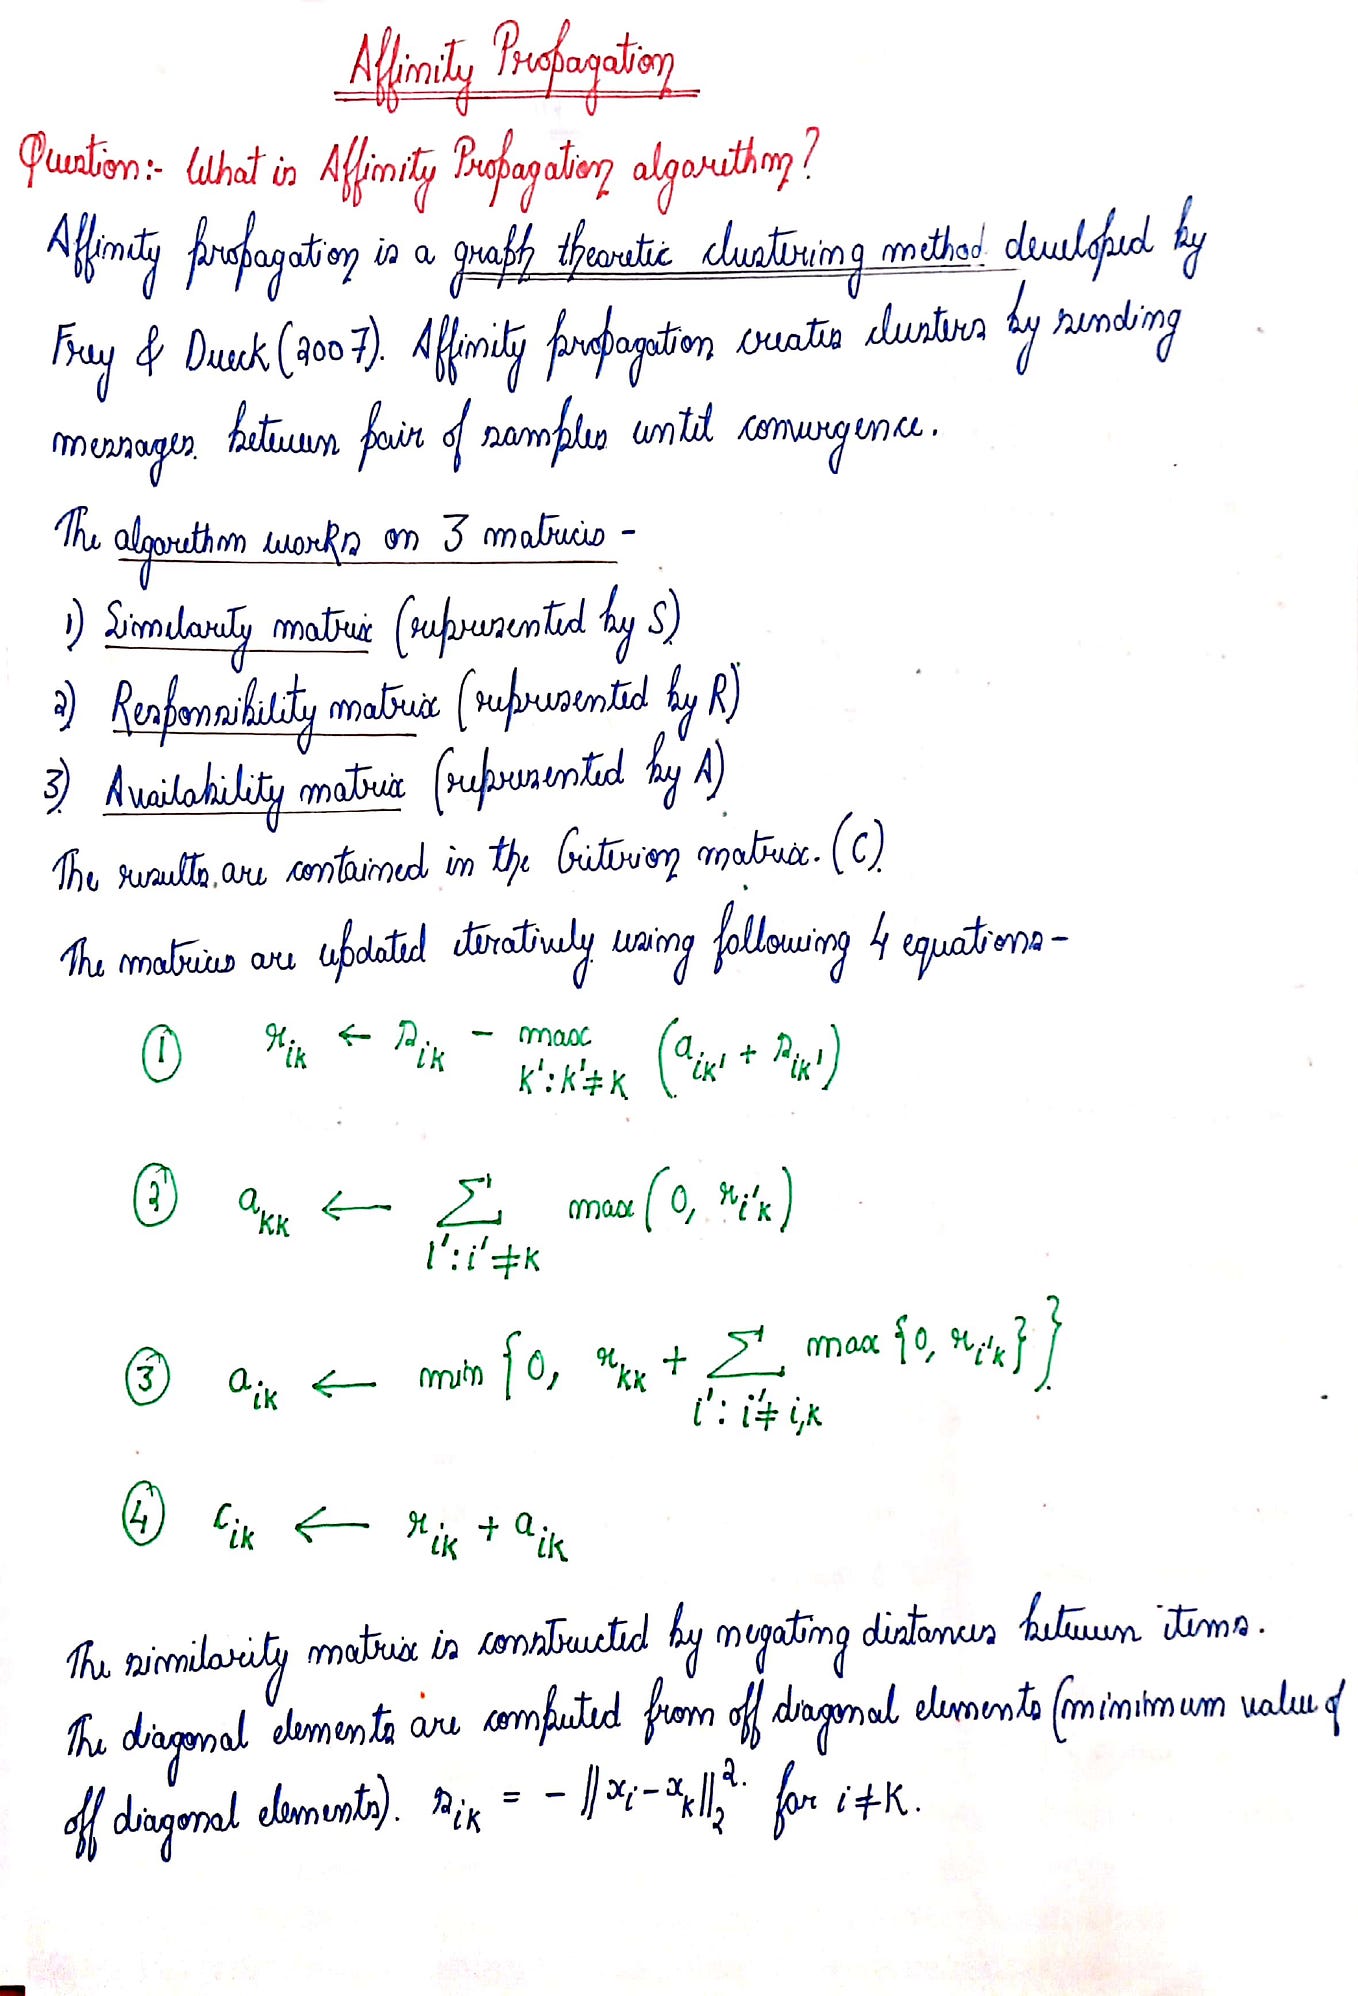 Affinity Propagation
Question:- What is Affinity Propagation algorithm?
Affinity propagation is a graph theoretic clustering method developed by
Frey & Dueck (2007). Affinity propagation creates clusters by sending
messages between pair of samples until convergence.
The algorithm works on 3 matrices -
1) Similarity matrix (represented by S)
2) Responsibility matrix (represented by R)
3) Availability matrix (represented by A)
The results are contained in the Criterion matrix. (C)
The matrices are updated iteratively using following 4 equations -
① r_ik ← s_ik - max_{k':k'≠k} (a_ik' + s_ik')
② a_kk ← Σ_{i':i'≠k} max(0, r_i'k)
③ a_ik ← min {0, r_kk + Σ_{i':i'≠i,k} max {0, r_i'k}}
④ c_ik ← r_ik + a_ik
The similarity matrix is constructed by negating distances between items.
The diagonal elements are computed from off diagonal elements (minimum value of
off diagonal elements). s_ik = - ||x_i - x_k||₂². for i≠k.